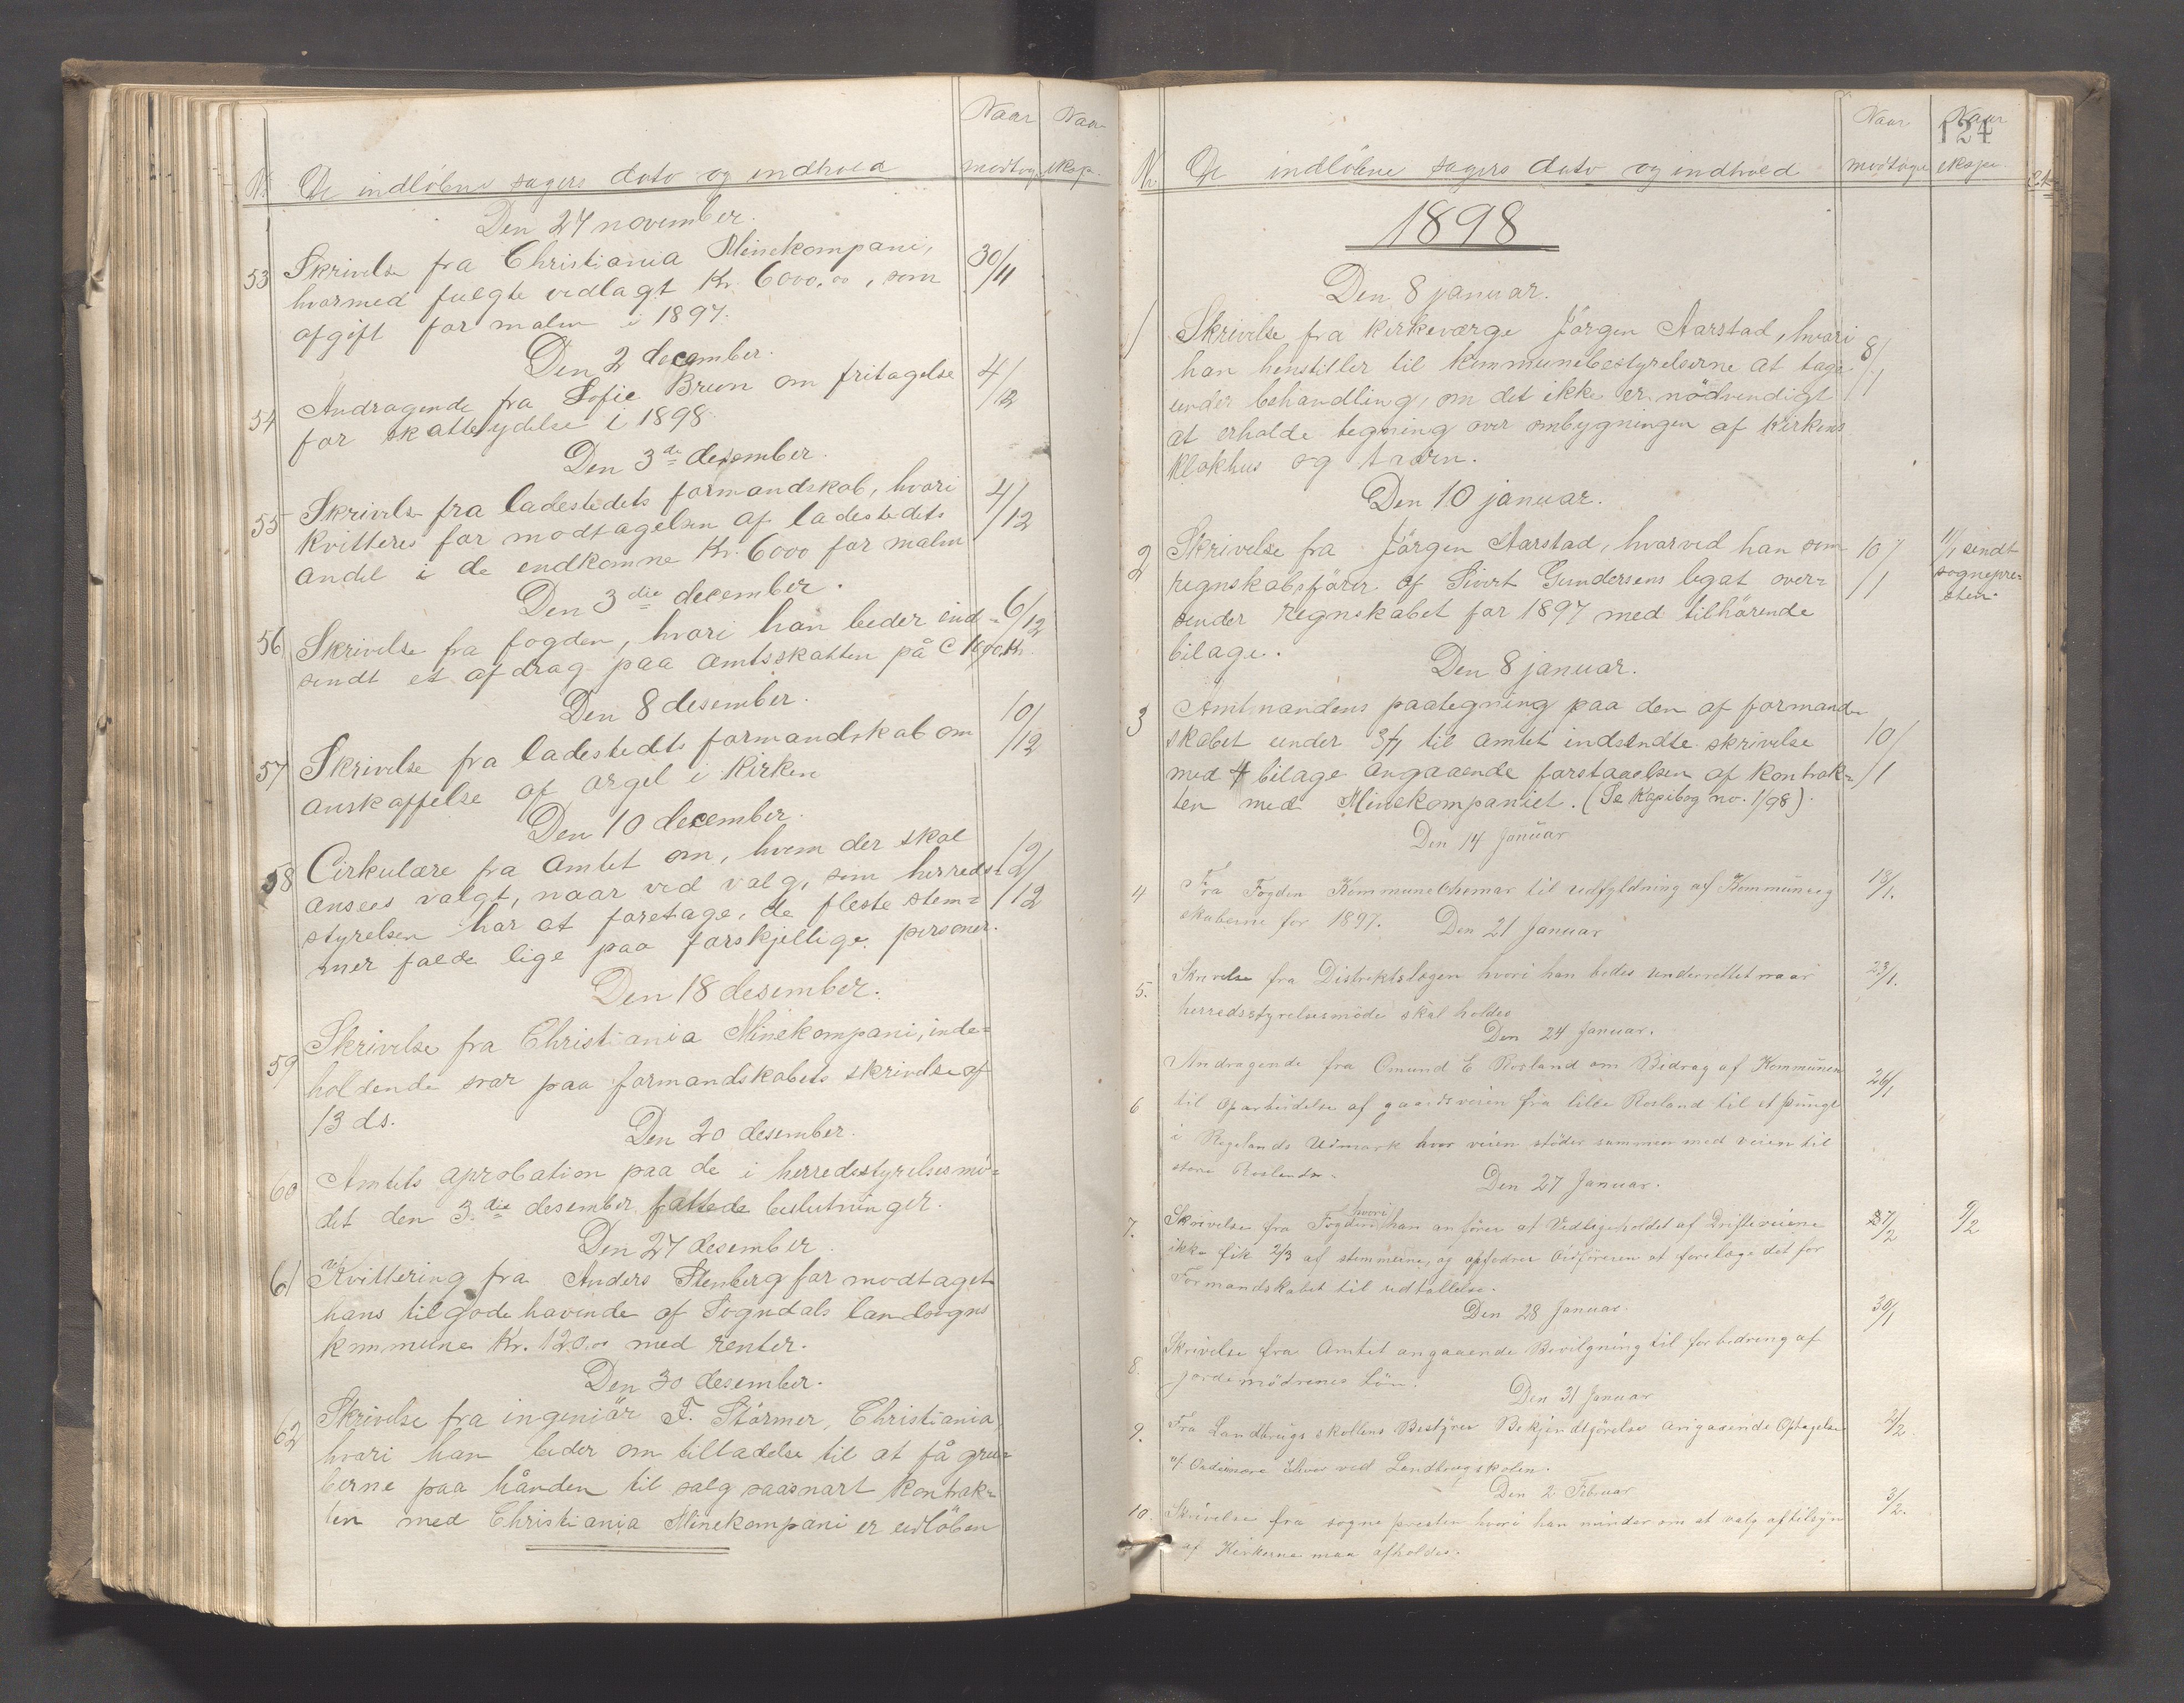 Naar Naar
Nr. De indløbne sagers dato og indhold modtag eksp.
Den 27 november.
53 Skrivelse fra Christiania Minekompani, 30/11
hvormed fulgte vedlagt Kr. 6000,00, som
afgift for malm i 1897.
Den 2 december.
54 Andragende fra Sofie Bruun om fritagelse 4/12
for skatteydelse i 1898.
Den 3de desember.
55 Skrivelse fra ladestedets formandskab, hvori 4/12
kvitteres for modtagelsen af ladestedets
andel i de indkomne Kr. 6000 for malm
Den 3die december.
56 Skrivelse fra fogden, hvori han beder ind- 6/12
sendt et afdrag paa amtsskatten på
Den 8 desember.
57 Skrivelse fra ladestedets formandskab om 10/12
anskaffelse af orgel i Kirken
Den 10 december.
58 Cirkulære fra amtet om, hvem der skal 12/12
ansees valgt, naar ved valg, som herreds-
styrelsen har at foretage, de fleste stem-
mer falde lige paa forskjellige personer.
Den 18 desember.
59 Skrivelse fra Christiania Minekompani, inde-
holdende svar paa formandskabets skrivelse af
13 ds.
Den 20 desember.
60 Amtets aprobation paa de i herredsstyrelsesmø-
det den 3die desember fattede beslutninger.
Den 27 desember
61 Kvittering fra Anders Stenberg for modtaget
hans tilgodehavende af Sogndals landsogns
kommune Kr. 120.00 med renter.
Den 30 desember.
62 Skrivelse fra ingeniör F. Störmer, Christiania,
hvori han beder om tilladelse til at få gru-
berne paa hånden til salg saasnart kontrak-
ten med Christiania Minekompani er udlöben
124
Naar Naar
Nr De indlöbne sagers dato og indhold modtage ekspe.
1898
Den 8 januar.
1 Skrivelse fra kirkeværge Jörgen Aarstad, hvori 8/1
han henstiller til kommunebestyrelserne at tage
under behandling, om det ikke er nödvendigt
at erholde tegning over ombygningen af Kirkens
klokhus og taarn.
Den 10 januar.
2 Skrivelse fra Jörgen Aarstad, hvorved han som 10/1 11/1 sendt
regnskabsförer af Sivert Gundersens legat over- sognepre-
sender regnskabet for 1897 med tilhörende sten.
bilage.
Den 8 januar.
3 Amtmandens paategning paa den af formand-
skabet under 3/1 til amtet indsendte skrivelse 10/1
med 4 bilage angaaende forstaaelsen af kontrak-
ten med Minekompaniet. (Se Kopibog no. 1/98).
Den 14 Januar
4 Fra Fogden til udfyldning af 18/1.
skaberne for 1897.
Den 21 Januar
5. Skrivelse fra Distriktslægen hvori han bedes underrettet naar 23/1.
herredsstyrelsesmöde skal holdes
Den 24 Januar.
Andragende fra Omund E Rosland om Bidrag af Kommunen 26/1
6 til Oparbeidelse af gaardsveien fra lille Rosland til et Punkt
i Regelands Udmark hvor veien stöder sammen med veien til
store Rosland.
Den 27 Januar.
7. Skrivelse fra Fogden hvori han anfører at Vedligeholdet af Drifteveiene 7/2 9/2
ikke fik 2/3 af stemmerne, og opfodrer Ordføreren at forelæge det for
Formandskabet til udtallelse.
Den 28 Januar. 30/1
8. Skrivelse fra Amtet angaaende Bevilgning til forbedring af
jordemödrenes Lön.
Den 31 Januar
9. Fra Landbrugsskollens Bestyrer Bekjendtgjörelse angaaende Optagelse 2/2
af Ordinære Elever ved Landbrugskolen.
Den 2 Februar
10. Skrivelse fra sogne presten hvori han minder om at valg af tilsyn 3/2.
af Kirkerne maa afholdes.